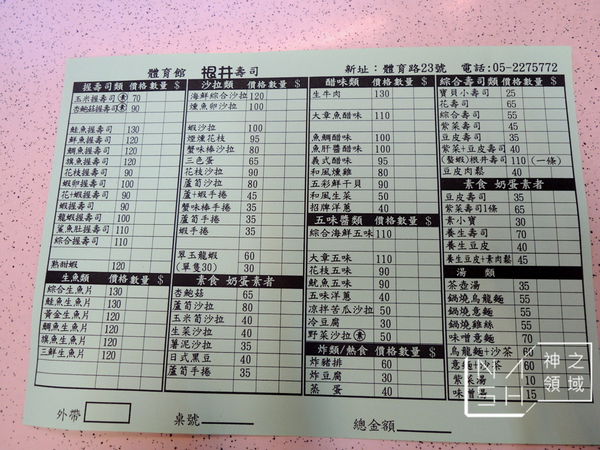 體育館 根井壽司 新址：體育路23號 電話:05-2275772
握壽司類 價格 數量 $
玉米握壽司 素 70
杏鮑菇握壽司 素 90
鮭魚握壽司 130
鮮魚握壽司 110
鯛魚握壽司 115
旗魚握壽司 110
花枝握壽司 110
蝦卵握壽司 100
花+蝦握壽司 100
蝦握壽司 90
龍蝦握壽司 110
鯊魚肚握壽司 110
綜合握壽司 110
熟甜蝦 120
生魚類 價格 數量 $
綜合生魚片 130
鮭魚生魚片 130
黃金生魚片 110
鯛魚生魚片 120
旗魚生魚片 120
三鮮生魚片 120
沙拉類 價格 數量 $
海鮮綜合沙拉 120
燻魚卵沙拉 100
蝦沙拉 100
煙燻花枝 95
蟹味棒沙拉 80
三色蛋 65
花枝沙拉 90
蘆筍沙拉 80
蘆+蝦手捲 35
蟹味棒手捲 35
蘆筍手捲 35
蝦手捲 35
翠玉龍蝦 60
(單隻30) 30
素食 奶蛋素者
杏鮑菇 65
蘆筍沙拉 80
玉米筍沙拉 40
生菜沙拉 40
薯泥沙拉 35
日式黑豆 40
蘆筍手捲 35
醋味類 價格 數量 $
生牛肉 130
大章魚醋味 110
魚鯛醋味 100
魚肝醬醋味 100
義式醋味 95
和風燻雞 80
五彩鮮干貝 90
和風生菜 50
招牌洋蔥 40
五味醬類 價格 數量 $
綜合海鮮五味 110
大章五味 110
花枝五味 90
魷魚五味 90
五味洋蔥 40
涼拌苦瓜沙拉 50
冷豆腐 30
野菜沙拉 素 50
炸類/熱食 價格 數量 $
炸豬排 60
炸豆腐 30
蒸蛋 40
綜合壽司類 價格 數量 $
寶貝小壽司 25
花壽司 65
綜合壽司 55
紫菜壽司 35
豆皮壽司 35
紫菜+豆皮壽司 40
(螯蝦)根井壽司 110 (一條)
豆皮肉鬆 40
素食 奶蛋素者
豆皮壽司 35
紫菜壽司1條 65
素小寶 30
養生壽司 70
養生豆皮 40
養生豆皮+素肉鬆 45
湯類
茶壺湯 35
鍋燒烏龍麵 55
鍋燒意麵 55
鍋燒雞絲 55
味噌意麵 60
烏龍麵+沙茶 60
意麵+沙茶 55
紫菜湯 10
味噌湯 15
外帶 桌號 總金額
神之領域